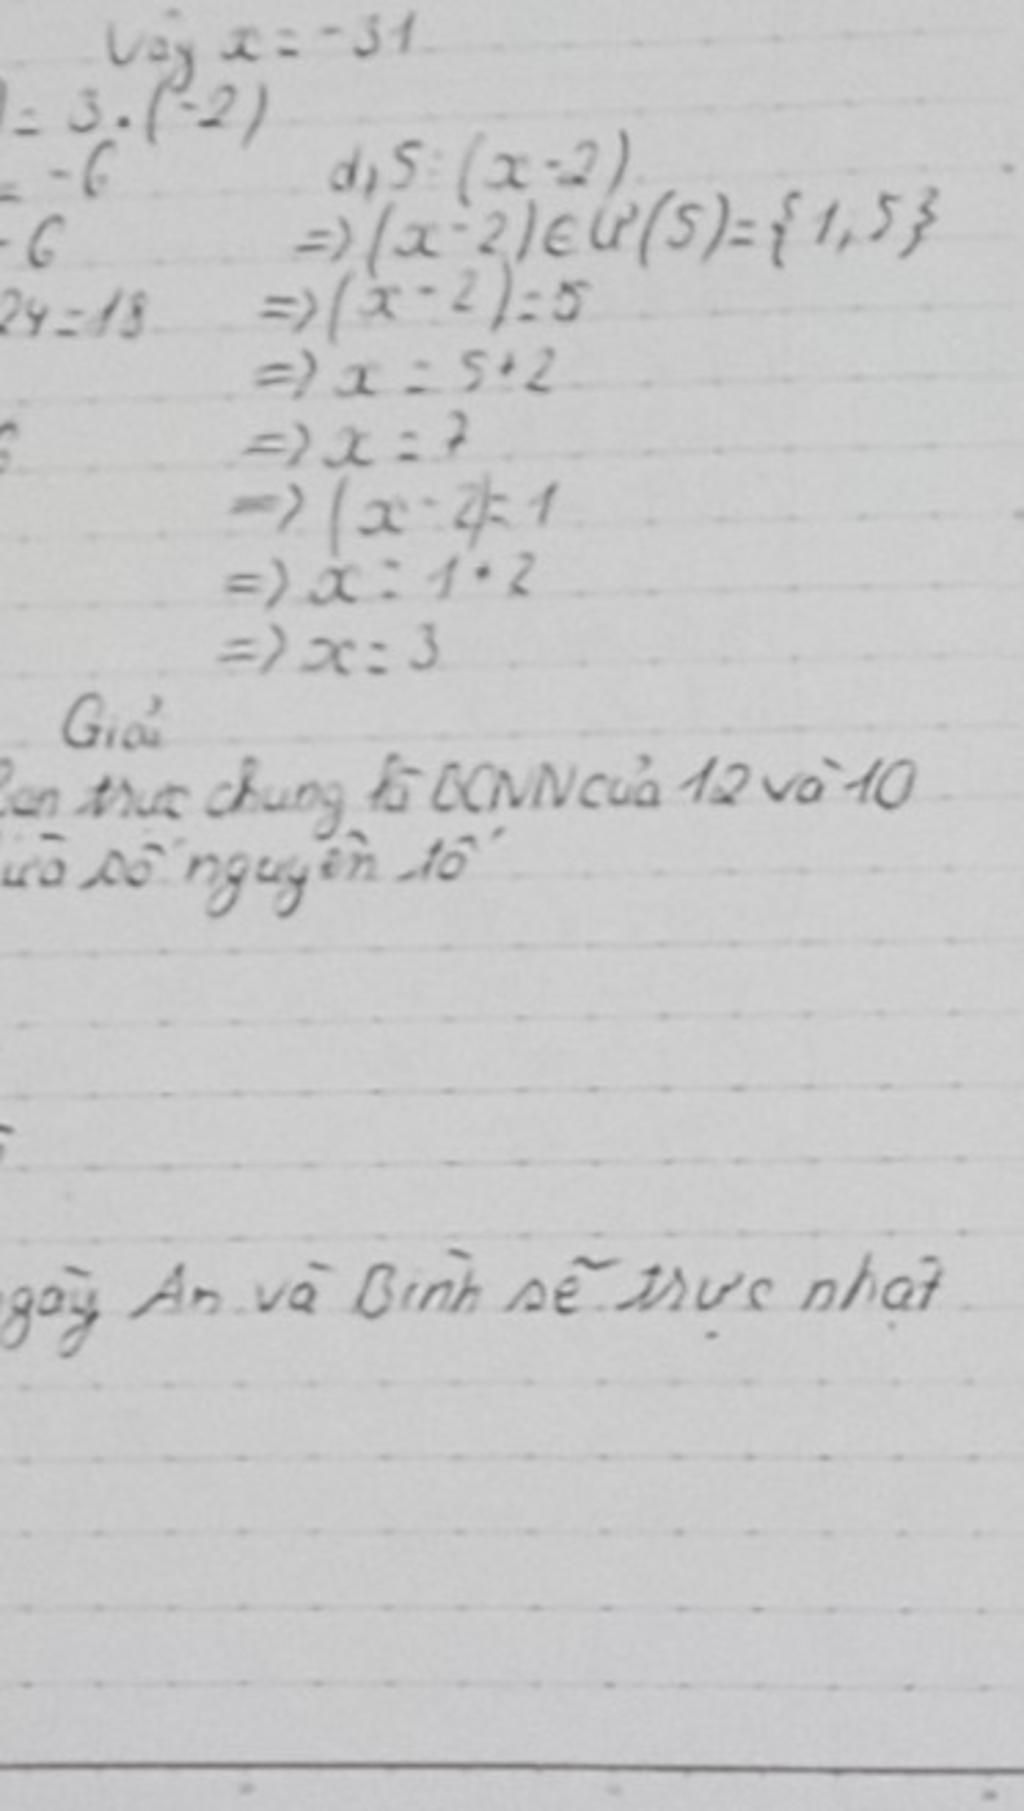 Vậy x = -31
= 3.(-2)
= -6
d, 5 : (x - 2)
- 6
=> (x - 2) ∈ Ư(5) = {1, 5}
24 = 18
=> (x - 2) = 5
=> x = 5 + 2
=> x = 7
=> (x - 2) = 1
=> x = 1 + 2
=> x = 3
Giải
trực chung là BCNN của 12 và 10
số nguyên tố
An và Bình sẽ trực nhật